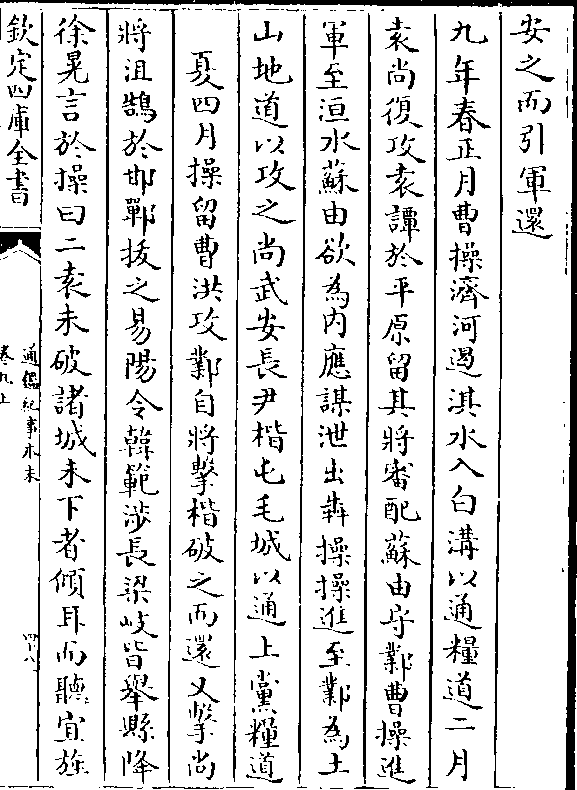 安之而引軍還
九年春正月曹操濟河遏淇水入白溝以通糧道二月
袁尚復攻袁譚於平原留其將審配蘇由守鄴曹操進
軍至洹水蘇由欲為内應謀泄出犇操操進至鄴為土
山地道以攻之尚武安長尹楷屯毛城以通上黨糧道
夏四月操留曹洪攻鄴自將擊楷破之而還又擊尚
將沮鵠於邯鄲拔之易陽令韓範涉長梁岐皆舉縣降
徐晃言於操曰二袁未破諸城未下者傾耳而聽宜旌
欽定四庫全書
通鑑紀事本末
卷九上
四十八